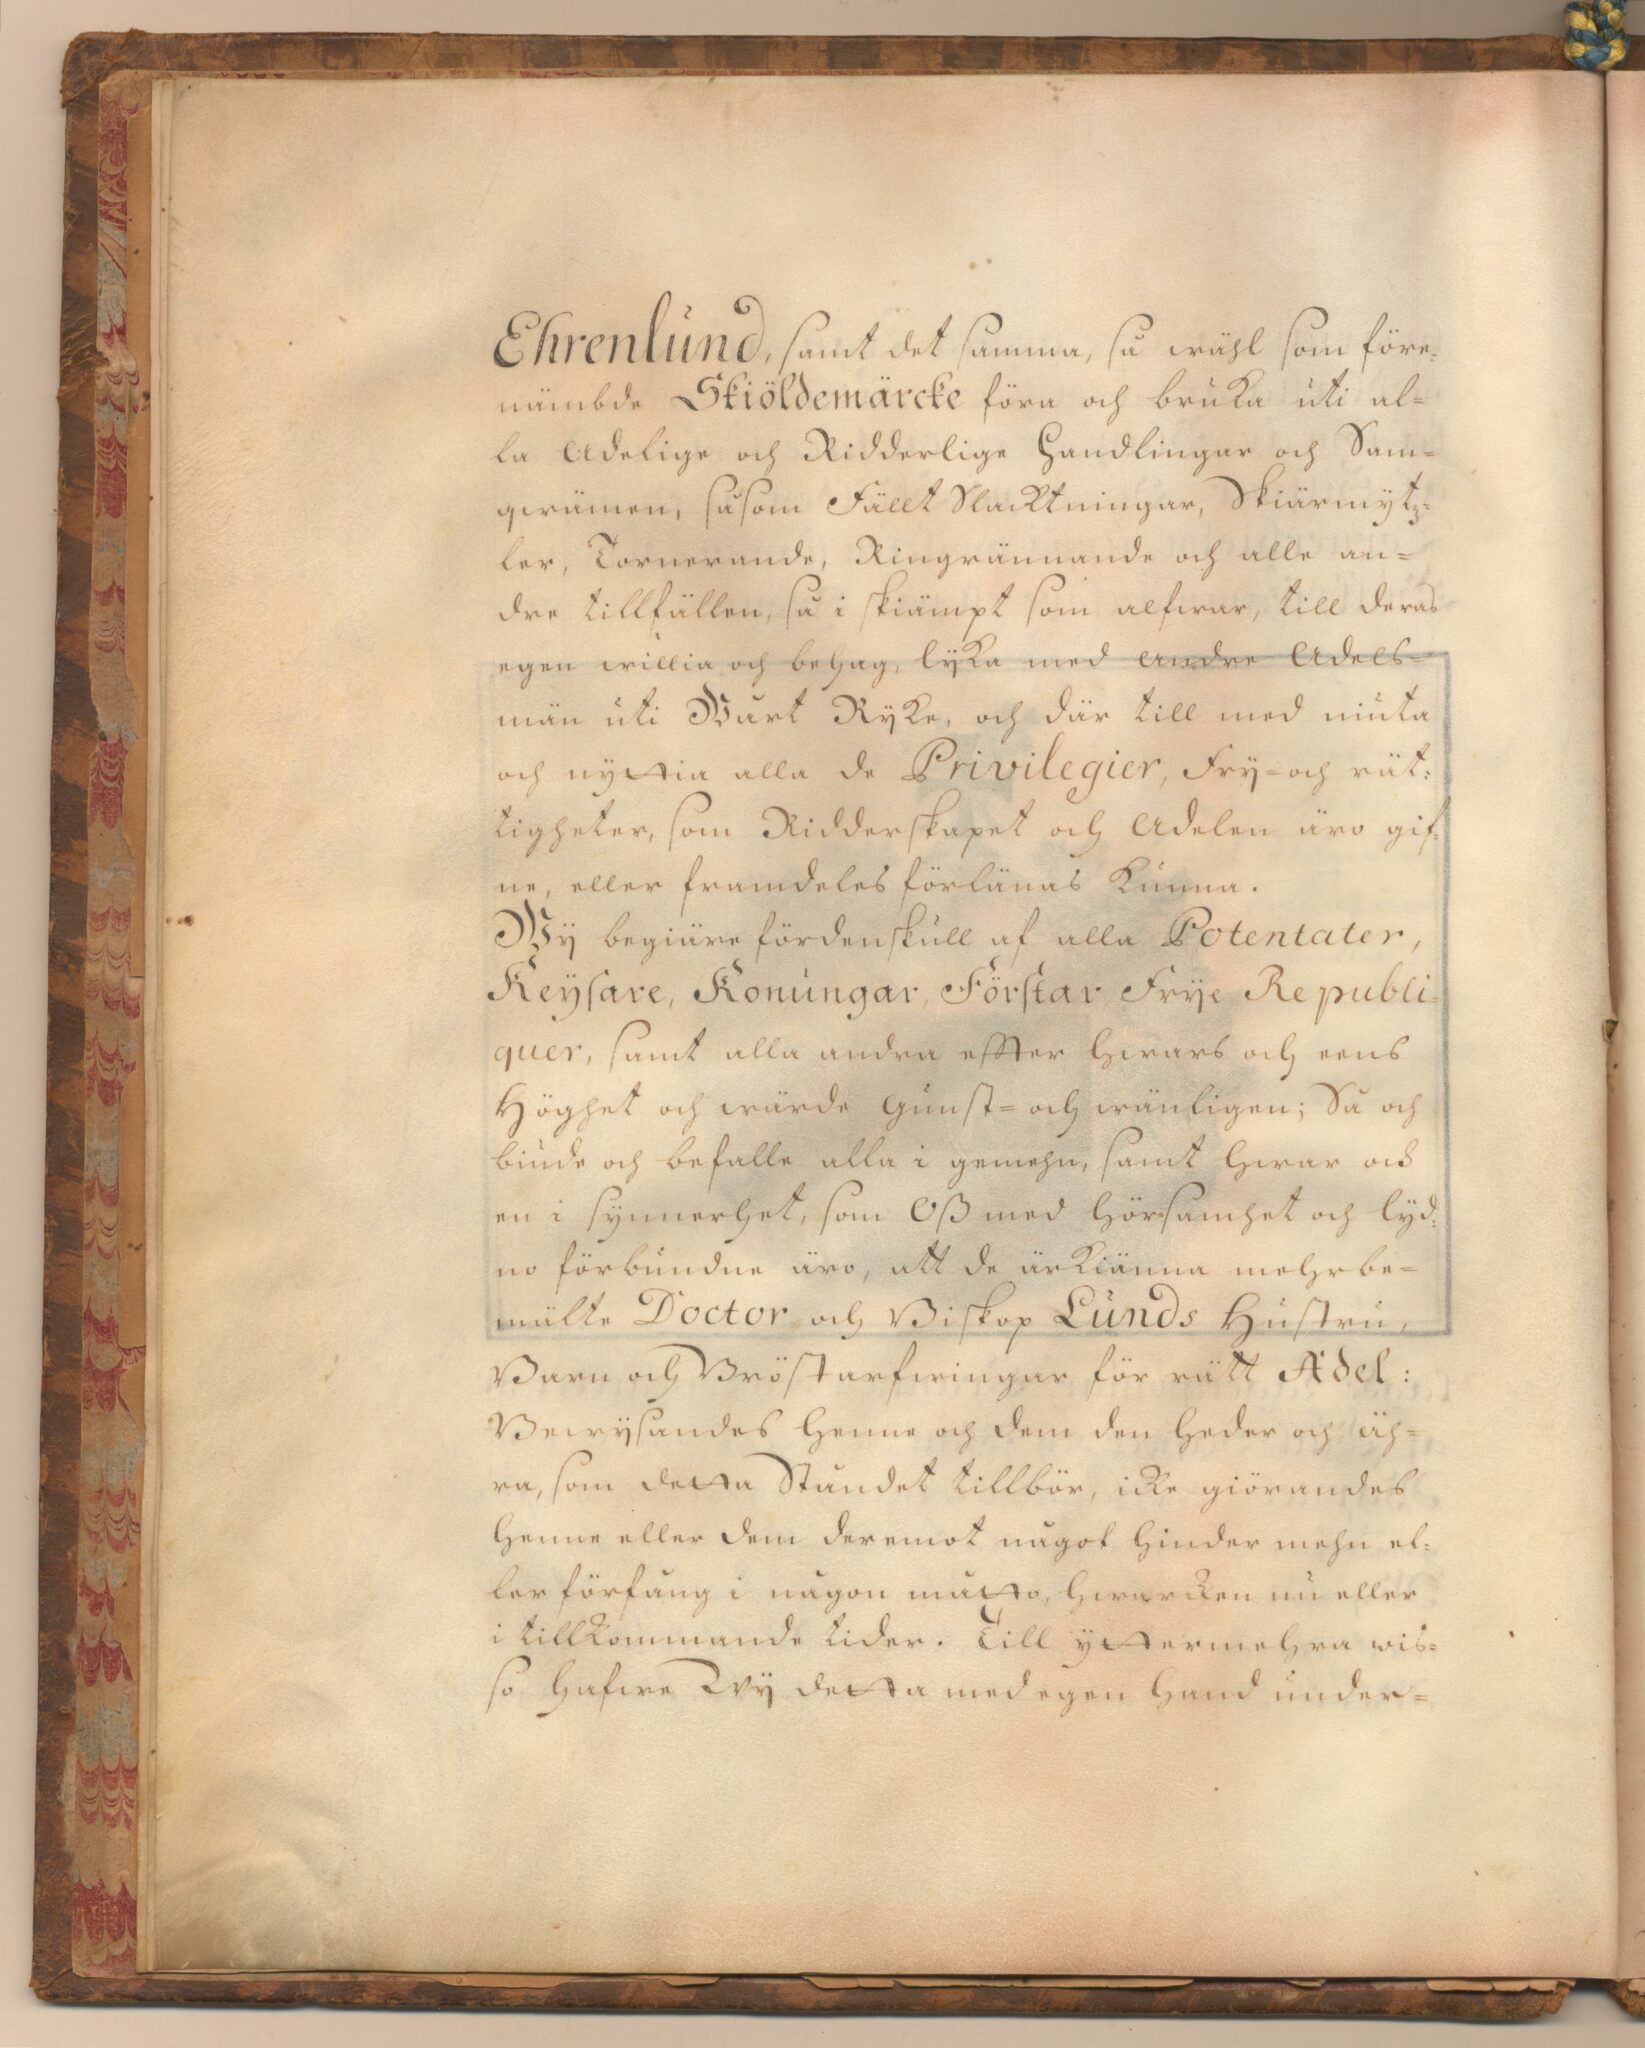 Ehrenlund, samt det samma, så wähl som före-
nämbde Skiöldemärcke föra och bruka uti al=
la Adelige och Ridderlige Handlingar och Sam=
qwämen, såsom Fällt Slacktningar, Skiärmytz=
ler, Tornerande, Ringrännande och alle an=
dre tillfällen, så i skiämpt som alfwar, till deras
egen willia och behag, lyka med andre Adels=
män uti Wårt Ryke, och där till med niuta
och nyttia alla de Privilegier, Fry= och rät:
tigheter, som Ridderskapet och Adelen äro gif-
ne, eller framdeles förlänas kunna.
Wy begiäre fördenskull af alla Potentater,
Keysare, Konungar, Förstar, Frye Republi-
quer, samt alla andra effter hwars och eens
Höghet och wärde gunst= och wänligen; Så och
biude och befalle alla i gemehn, samt hwar och
en i synnerhet, som Oß med hörsamhet och lyd:
no förbundne äro, att de ärkiänna mehrbe=
mälte Doctor och Biskop Lunds Hustru,
Barn och Bröstarfwingar för rätt Adel:
Bewysandes henne och dem den heder och äh=
ra, som detta Ståndet tillbör, icke giörandes
henne eller dem deremot något hinder mehn el-
ler förfång i någon måtto, hwarcken nu eller
i tillkommande tider. Till yttermehra wis=
so hafwe Wy detta med egen hand under=